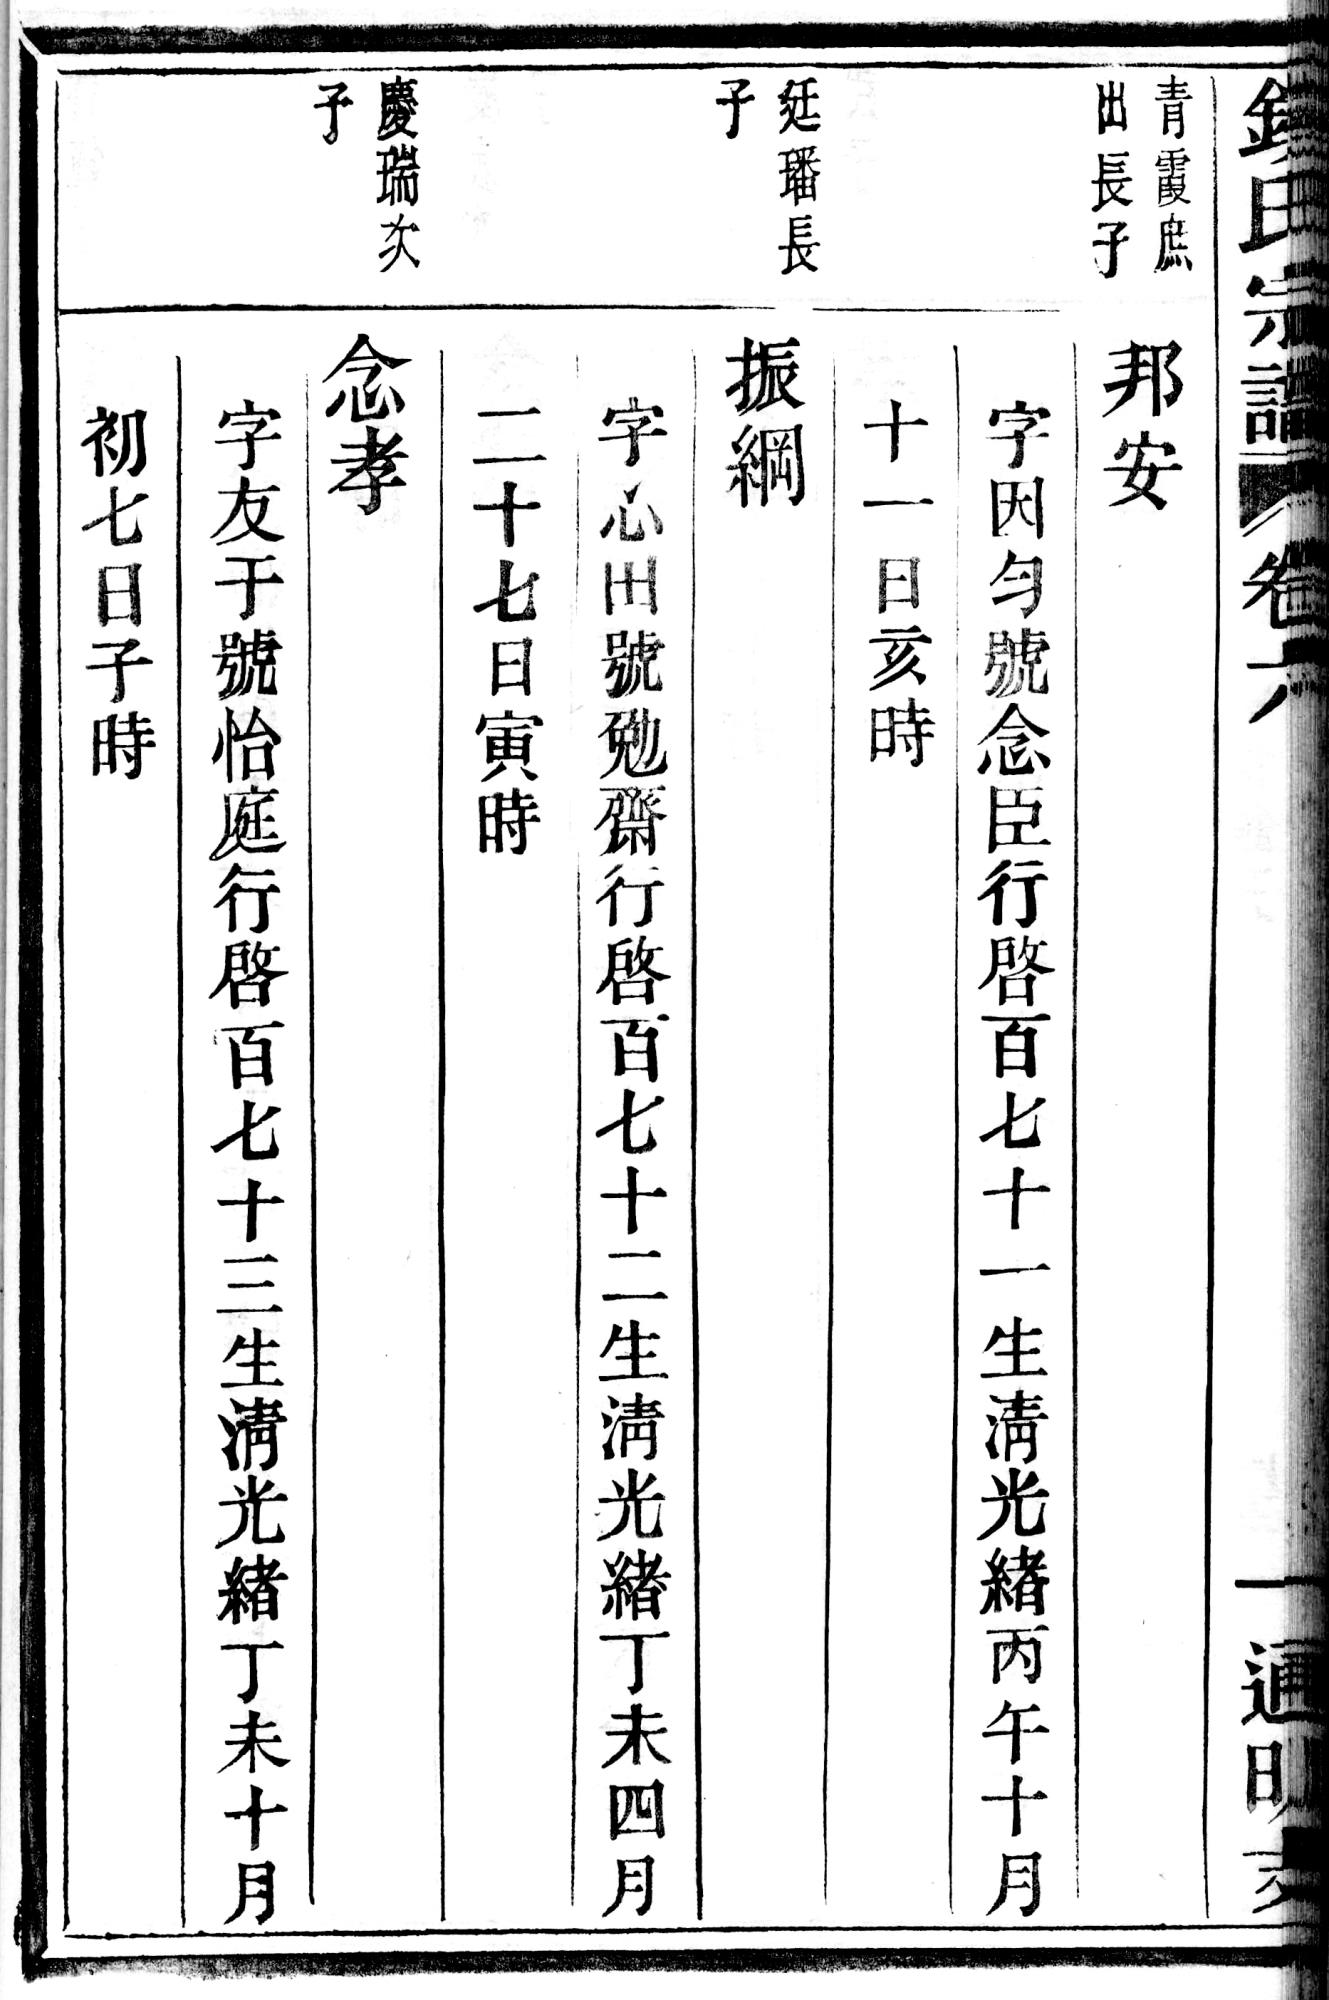 氏宗譜 卷六 通明
青霞庶
出長子
邦安
字因勻號念臣行啓百七十一生淸光緒丙午十月
十一日亥時
廷璠長
子
振綱
字心田號勉齋行啓百七十二生淸光緒丁未四月
二十七日寅時
慶瑞次
子
念孝
字友于號怡庭行啓百七十三生淸光緒丁未十月
初七日子時